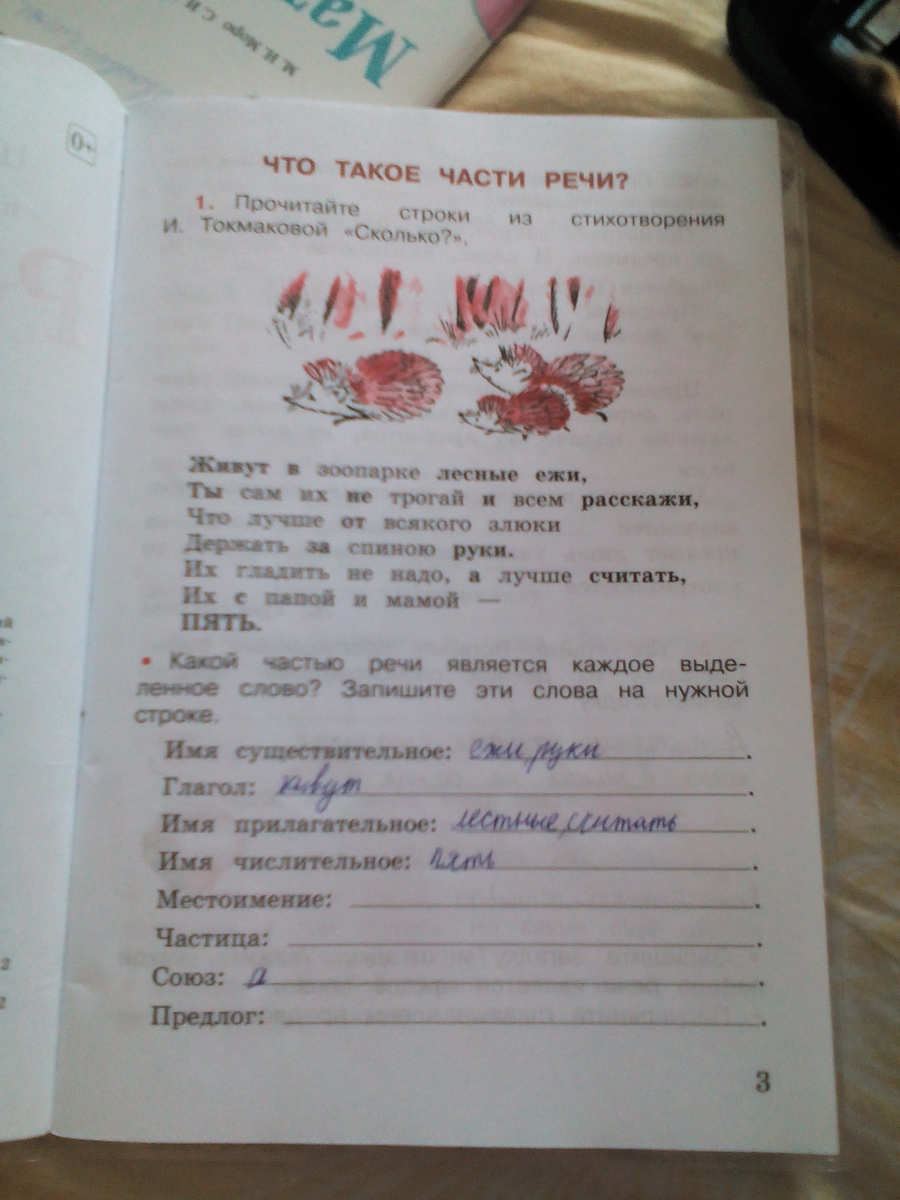 М. И. Моро
Мат
0+
ЧТО ТАКОЕ ЧАСТИ РЕЧИ?
1. Прочитайте строки из стихотворения
И. Токмаковой «Сколько?».
Живут в зоопарке лесные ежи,
Ты сам их не трогай и всем расскажи,
Что лучше от всякого злюки
Держать за спиною руки.
Их гладить не надо, а лучше считать,
Их с папой и мамой —
ПЯТЬ.
• Какой частью речи является каждое выде-
ленное слово? Запишите эти слова на нужной
строке.
Имя существительное: ежи, руки.
Глагол: живут.
Имя прилагательное: лестные, считать.
Имя числительное: пять.
Местоимение:
Частица:
Союз: а.
Предлог:
3